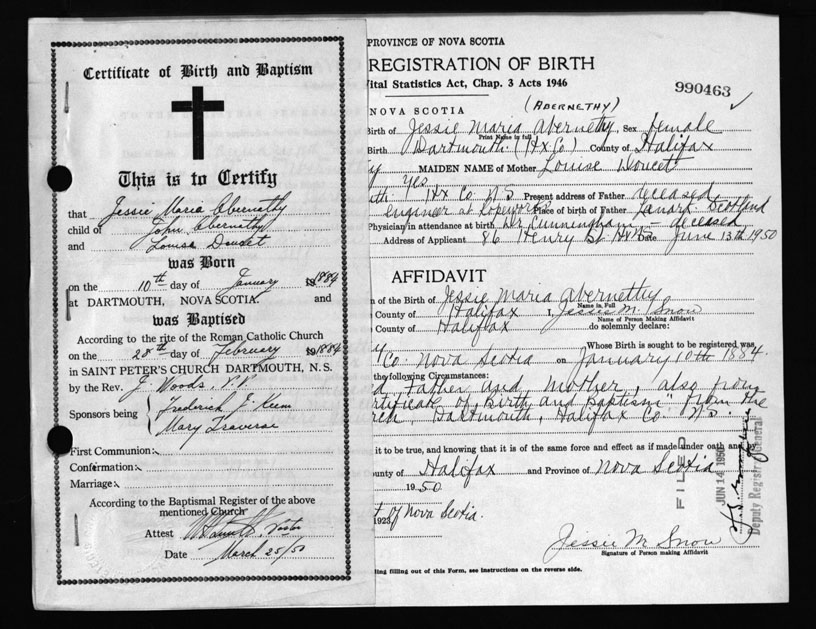 Certificate of Birth and Baptism
This is to Certify
that Jessie Maria Abernathy
child of John Abernathy
and Louisa Doucet
was Born
on the 10th day of January 1884
at DARTMOUTH, NOVA SCOTIA. and
was Baptised
According to the rite of the Roman Catholic Church
on the 28th day of February 1884
in SAINT PETER'S CHURCH DARTMOUTH, N. S.
by the Rev. J. Woods, P.P.
Sponsors being Frederick J. Keem
Mary Traverse
First Communion:
Confirmation:
Marriage:
According to the Baptismal Register of the above
mentioned Church
Attest
Date March 25/50
PROVINCE OF NOVA SCOTIA
REGISTRATION OF BIRTH
Vital Statistics Act, Chap. 3 Acts 1946
990463
NOVA SCOTIA (ABERNETHY)
Birth of Jessie Maria Abernethy, Sex Female
Print Name in full
Birth Dartmouth (Hx Co) County of Halifax
MAIDEN NAME of Mother Louise Doucet
Yes
Hx Co N.S Present address of Father deceased
engineer at Ropeworks Place of birth of Father Lanark Scotland
Physician in attendance at birth Dr Cunningham - deceased
Address of Applicant 86 Henry St Hx N.S Date June 13th 1950
AFFIDAVIT
n of the Birth of Jessie Maria Abernethy
Name in Full
County of Halifax I, Jessie M. Snow
Name of Person Making Affidavit
County of Halifax do solemnly declare:
Whose Birth is sought to be registered was
Co. Nova Scotia on January 10th 1884.
the following Circumstances:
Father and Mother, also from
certificate of "Birth and Baptism" from the
Dartmouth, Halifax Co. N.S.
it to be true, and knowing that it is of the same force and effect as if made under oath and by
County of Halifax and Province of Nova Scotia
1950
1923 of Nova Scotia.
FILED
JUN 14 1950
Deputy Registrar General
Jessie M Snow
Signature of Person making Affidavit
ing filling out of this Form, see instructions on the reverse side.